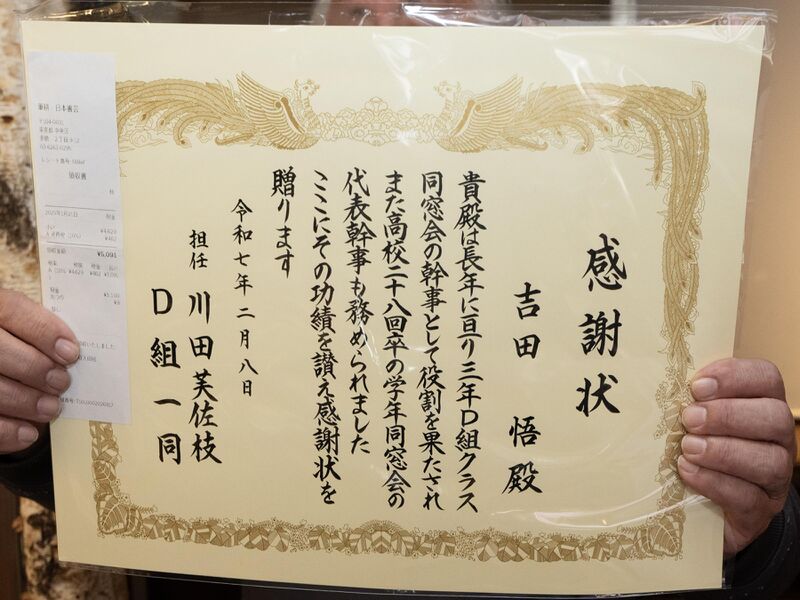 感謝状
吉田 悟 殿
貴殿は長年に亘り三年D組クラス
同窓会の幹事として役割を果たされ
また高校二十八回卒の学年同窓会の
代表幹事も務められました
ここにその功績を讃え感謝状を
贈ります
令和七年二月八日
担任 川田芙佐枝
D組一同
筆耕 日本書芸
領収書
¥5,091